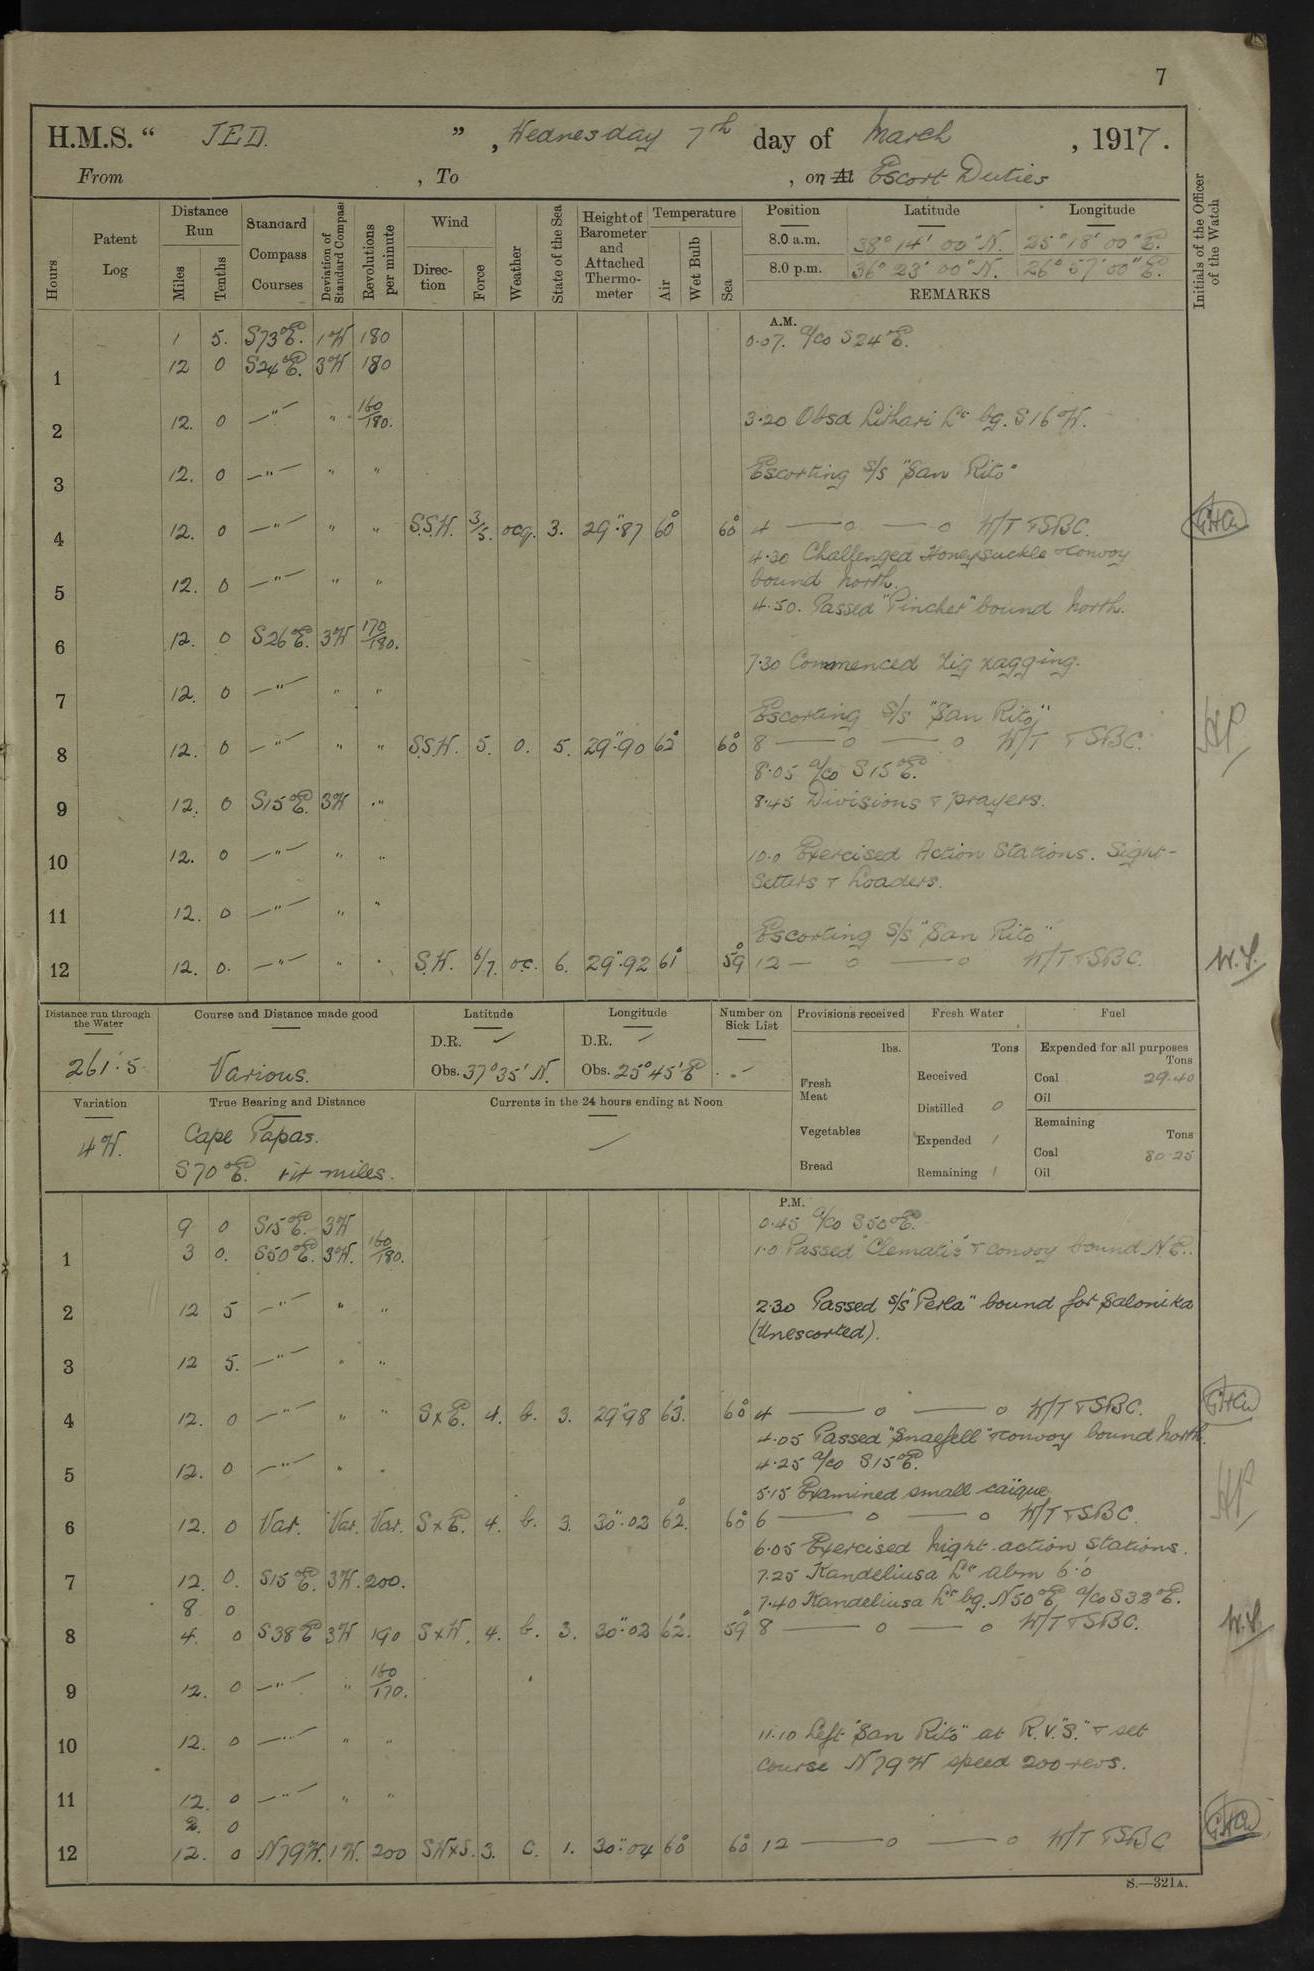 7
H.M.S. “ JED. ” , Wednesday 7th day of March , 1917.
From , To , on At Escort Duties
Hours
Patent Log
Distance Run
Miles Tenths
Standard Compass Courses
Deviation of Standard Compass
Revolutions per minute
Wind
Direction Force
Weather
State of the Sea
Height of Barometer and Attached Thermometer
Temperature
Air Wet Bulb Sea
Position Latitude Longitude
8.0 a.m. 38° 14' 00" N. 25° 18' 00" E.
8.0 p.m. 36° 23' 00" N. 26° 57' 00" E.
REMARKS
Initials of the Officer of the Watch
A.M.
1 5. S73°E. 1W 180 0.07. a/co S24°E.
1 12 0 S24°E. 3W 180
2 12. 0 —"— " 160/180. 3.20 Obsd Lithari Lt bg. S16°W.
3 12. 0 —"— " " Escorting s/s "San Rito"
4 12. 0 —"— " " S.S.W. 3/5. ocq. 3. 29".87 60° 60° 4 —— o —— o W/T & SBC.
4.30 Challenged Honeysuckle & convoy
5 12. 0 —"— " " bound north.
4.50. Passed "Pincher" bound north.
6 12. 0 S26°E. 3W 170/180.
7.30 Commenced zig zagging.
7 12. 0 —"— " "
Escorting s/s "San Rito"
8 12. 0 —"— " " S.S.W. 5. o. 5. 29".90 62° 60° 8 —— o —— o W/T & SBC.
8.05 a/co S15°E.
9 12. 0 S15°E. 3W " 8.45 Divisions & prayers.
10 12. 0 —"— " " 10.0 Exercised Action Stations. Sight-
setters & Loaders.
11 12. 0 —"— " "
Escorting s/s "San Rito"
12 12. 0. —"— " " S.W. 6/7. oc. 6. 29".92 61° 59° 12 — o —— o W/T & SBC. W.S.
Distance run through the Water
Course and Distance made good
Latitude
Longitude
Number on Sick List
Provisions received
Fresh Water
Fuel
261'.5
Various.
D.R. ✓
Obs. 37°35' N.
D.R. ✓
Obs. 25°45' E
lbs.
Fresh Meat
Vegetables
Bread
Tons
Received
Distilled 0
Expended 1
Remaining 1
Expended for all purposes
Tons
Coal 29.40
Oil
Remaining
Tons
Coal 80.25
Oil
Variation
True Bearing and Distance
Currents in the 24 hours ending at Noon
4W.
Cape Papas.
S70°E. miles.
P.M.
9 0 S15°E. 3W 0.45 a/co S50°E.
1 3 0. S50°E. 3W. 160/180. 1.0 Passed "Clematis" & convoy bound N.E.
2 12 5 —"— " " 2.30 Passed s/s "Perla" bound for Salonika
(Unescorted).
3 12 5. —"— " "
4 12. 0 —"— " " SxE. 4. b. 3. 29".98 63. 60° 4 —— o —— o W/T & SBC.
4.05 Passed "Snaefell" & convoy bound north.
5 12. 0 —"— " " 4.25 a/co S15°E.
5.15 Examined small caique
6 12. 0 Var. Var. Var. SxE. 4. b. 3. 30".02 62. 60° 6 —— o —— o W/T & SBC.
6.05 Exercised night action stations.
7 12. 0. S15°E. 3W. 200. 7.25 Kandeliusa Lt abm 6'.0
8 0 7.40 Kandeliusa Lt bg. N50°E, a/co S38°E.
8 4. 0 S38°E 3W 190 SxW. 4. b. 3. 30".03 62. 59° 8 —— o —— o W/T & SBC. W.S.
9 12. 0 —"— " 160/170.
10 12. 0 —"— " " 11.10 Left "San Rito" at R.V. "S." & set
course N79W speed 200 revs.
11 12. 0 —"— " "
2. 0
12 12. 0 N79W. 1W. 200 SWxS. 3. c. 1. 30".04 60° 60° 12 —— o —— o W/T & SBC
S.—321A.